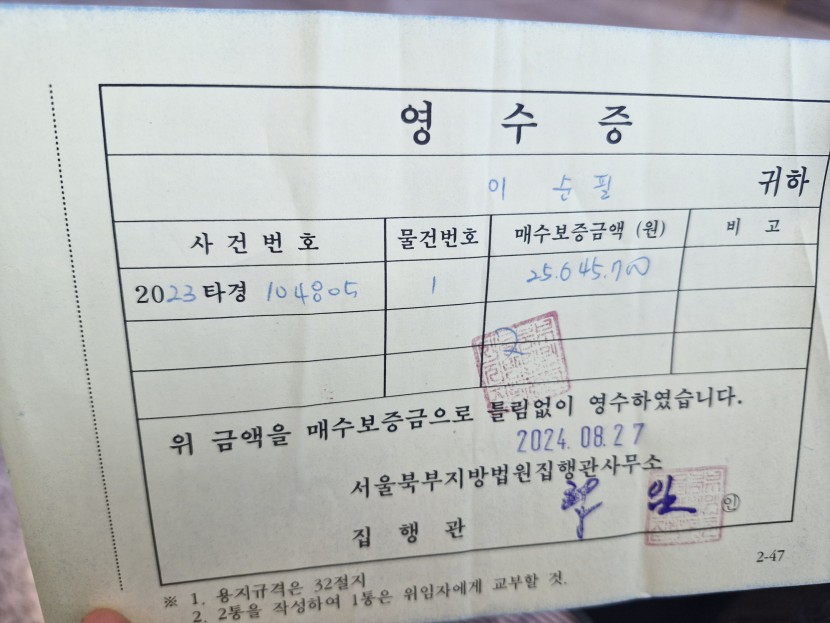 영 수 증
이 순 필 귀하
사 건 번 호 물건번호 매수보증금액 (원) 비 고
2023타경 104805 1 25.645.700
2
위 금액을 매수보증금으로 틀림없이 영수하였습니다.
2024.08.27
서울북부지방법원집행관사무소
집 행 관 인
2-47
※ 1. 용지규격은 32절지
2. 2통을 작성하여 1통은 위임자에게 교부할 것.